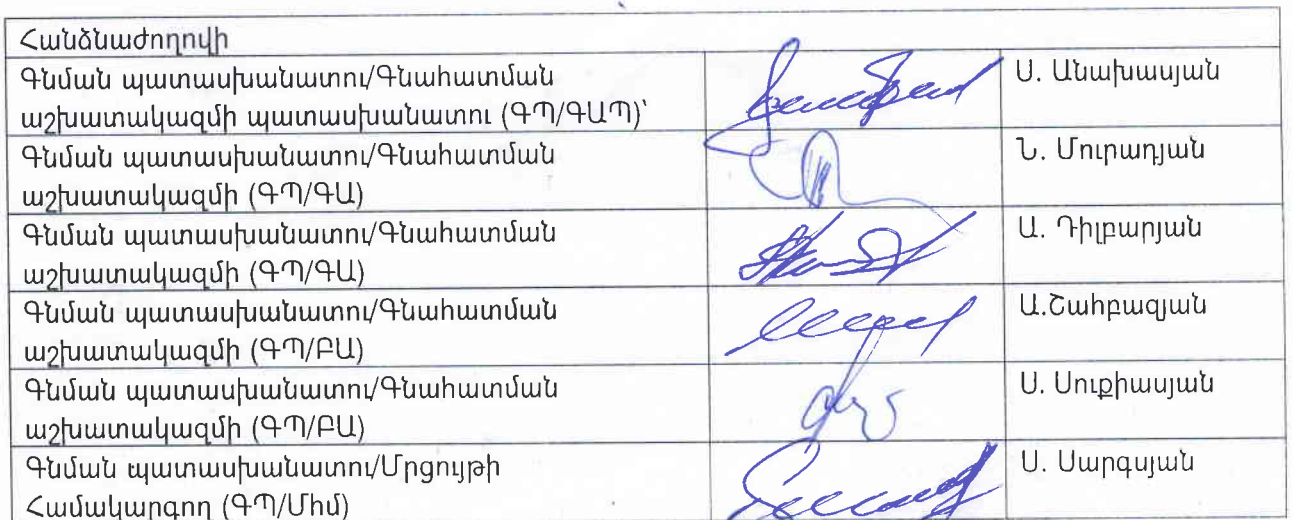 Հանձնաժողովի
Գնման պատասխանատու/Գնահատման
աշխատակազմի պատասխանատու (ԳՊ/ԳԱՊ)՝
Ս. Անախասյան
Գնման պատասխանատու/Գնահատման
աշխատակազմի (ԳՊ/ԳԱ)
Ն. Մուրադյան
Գնման պատասխանատու/Գնահատման
աշխատակազմի (ԳՊ/ԳԱ)
Ա. Դիլբարյան
Գնման պատասխանատու/Գնահատման
աշխատակազմի (ԳՊ/ԲԱ)
Ա.Շահբազյան
Գնման պատասխանատու/Գնահատման
աշխատակազմի (ԳՊ/ԲԱ)
Ս. Սուքիասյան
Գնման պատասխանատու/Մրցույթի
Համակարգող (ԳՊ/Միմ)
Ս. Սարգսյան